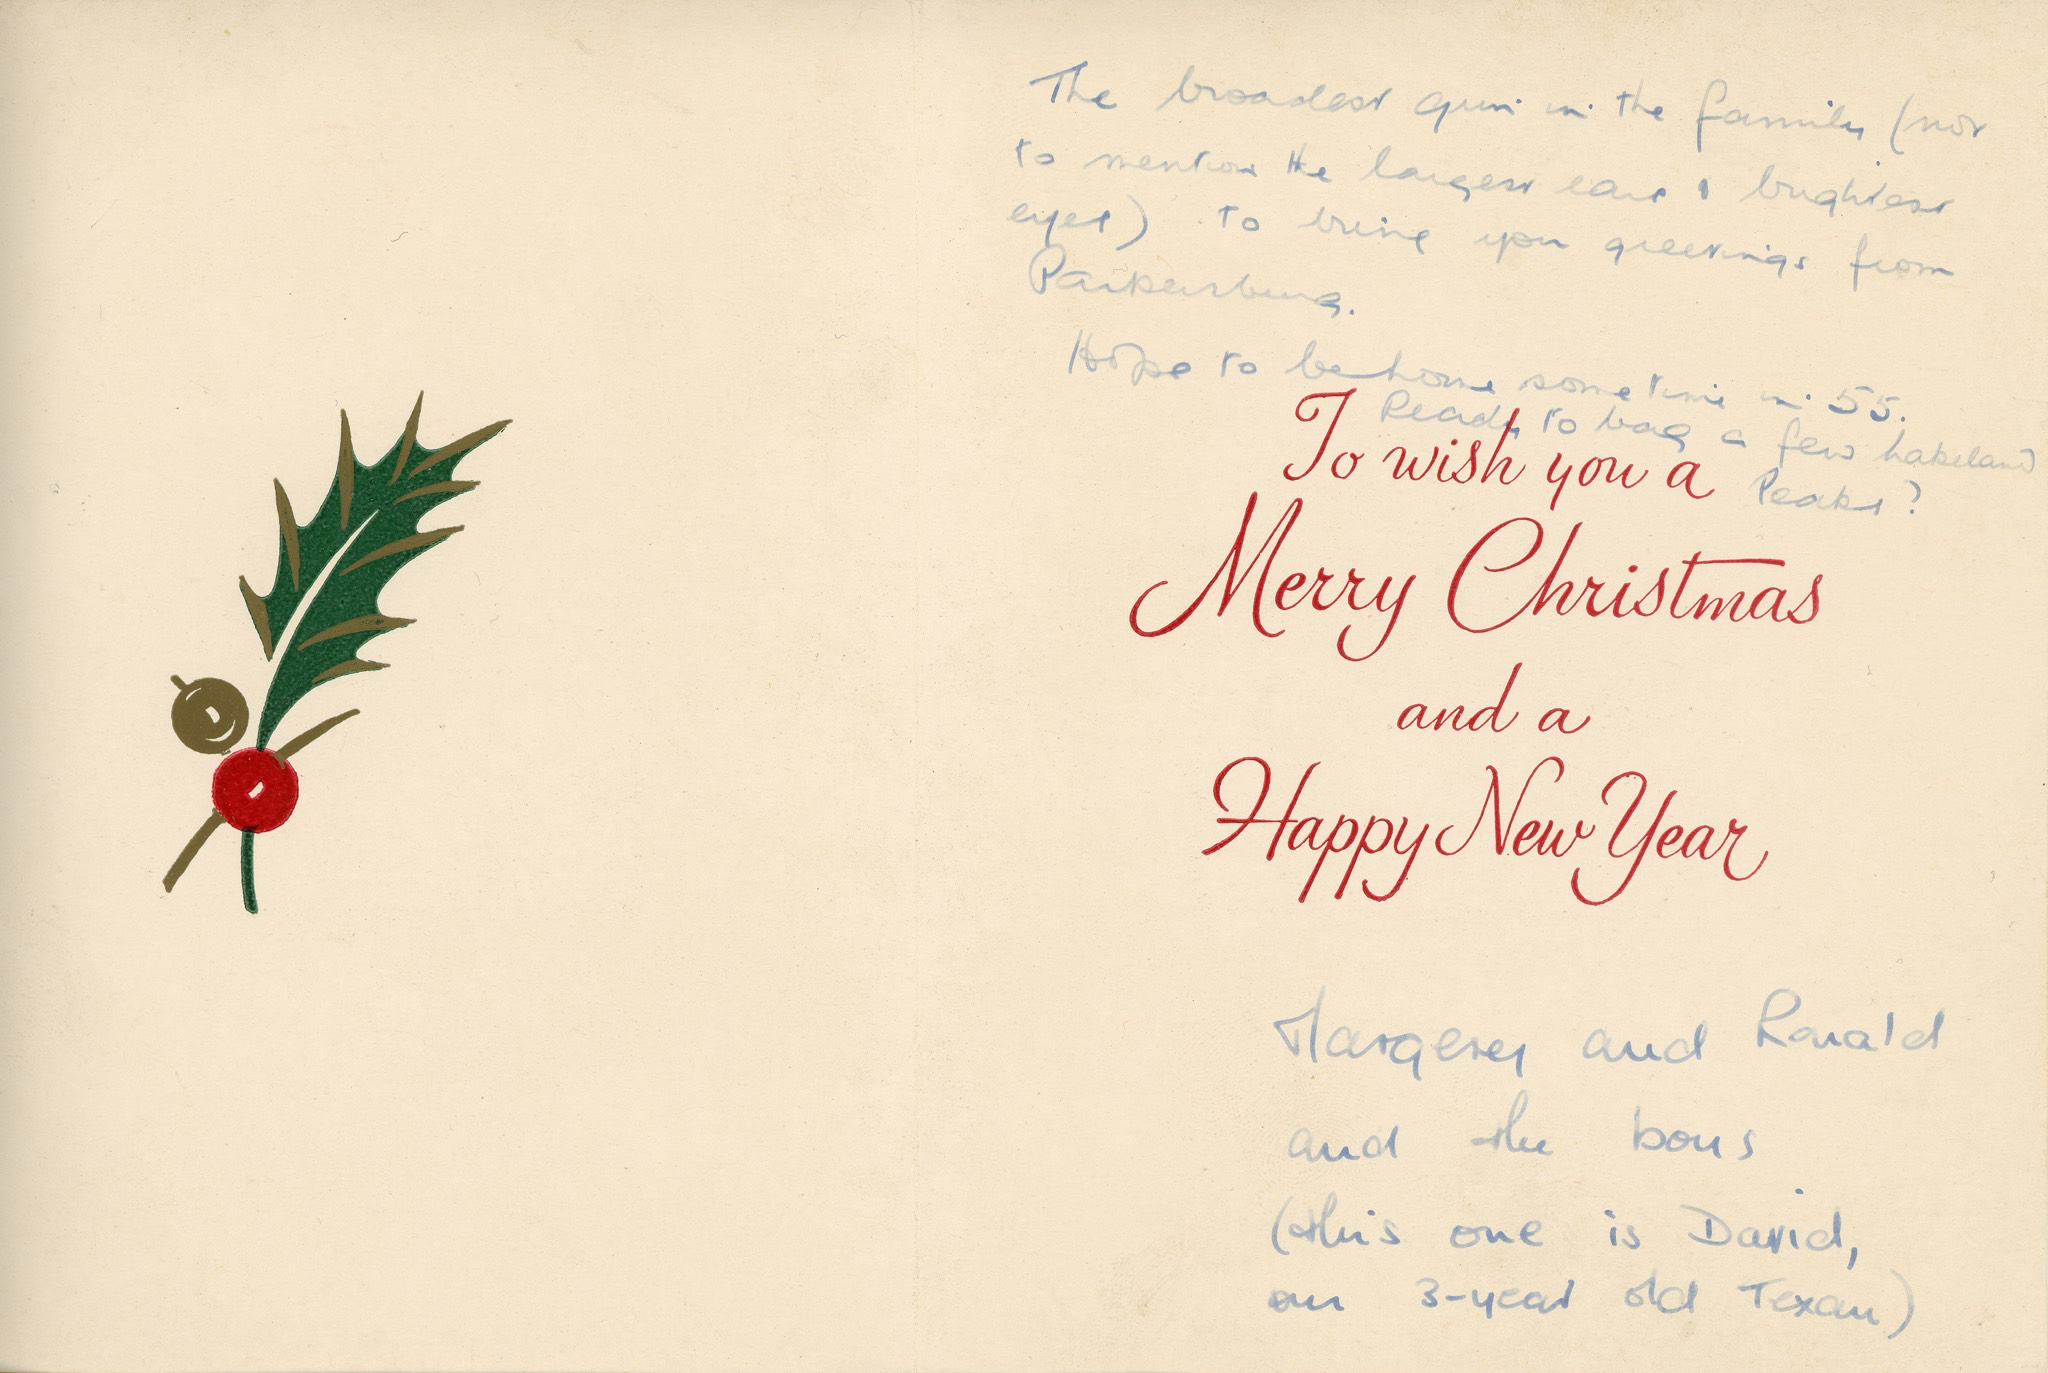 The broadest grin in the family (not
to mention the largest ears & brightest
eyes) to bring you greetings from
Parkersburg.
Hope to be home sometime in 55.
Ready to bag a few Lakeland
Peaks?
To wish you a
Merry Christmas
and a
Happy New Year
Margery and Ronald
and the boys
(this one is David,
our 3-year old Texan)